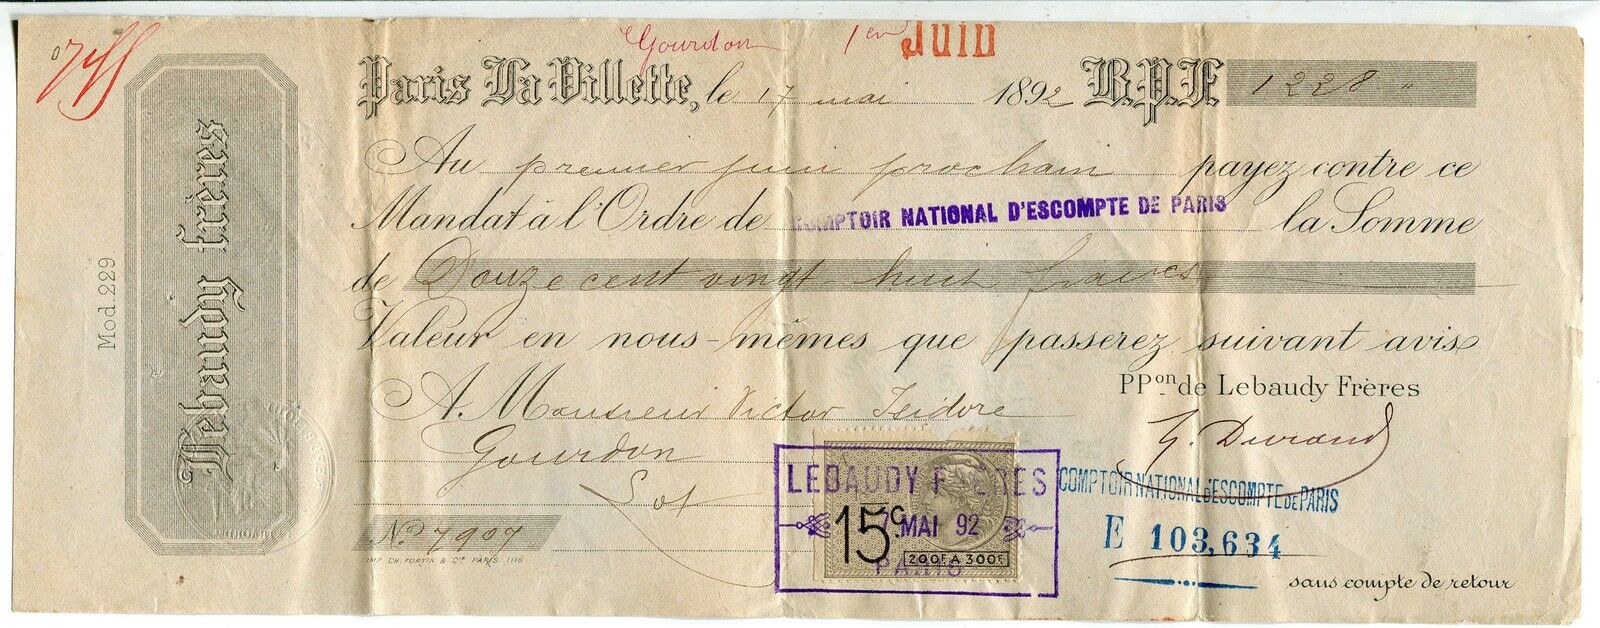 Gourdon 1er JUIN
Paris La Villette, le 17 mai 1892 B.P.F. 1228 "
Au premier juin prochain payez contre ce
Mandat à l'Ordre de COMPTOIR NATIONAL D'ESCOMPTE DE PARIS la Somme
de Douze cent vingt huit francs
Valeur en nous-mêmes que passerez suivant avis
PPon de Lebaudy Frères
A Monsieur Victor Isidore
G. Durand
Gourdon
Lot
No 7907
IMP. CH. FORTIN & Cie PARIS 1116
LEBAUDY FRERES
17 MAI 92
PARIS
15c
200F A 300F
COMPTOIR NATIONAL D'ESCOMPTE DE PARIS
E 103,634
sans compte de retour
Lebaudy frères
Mod. 229